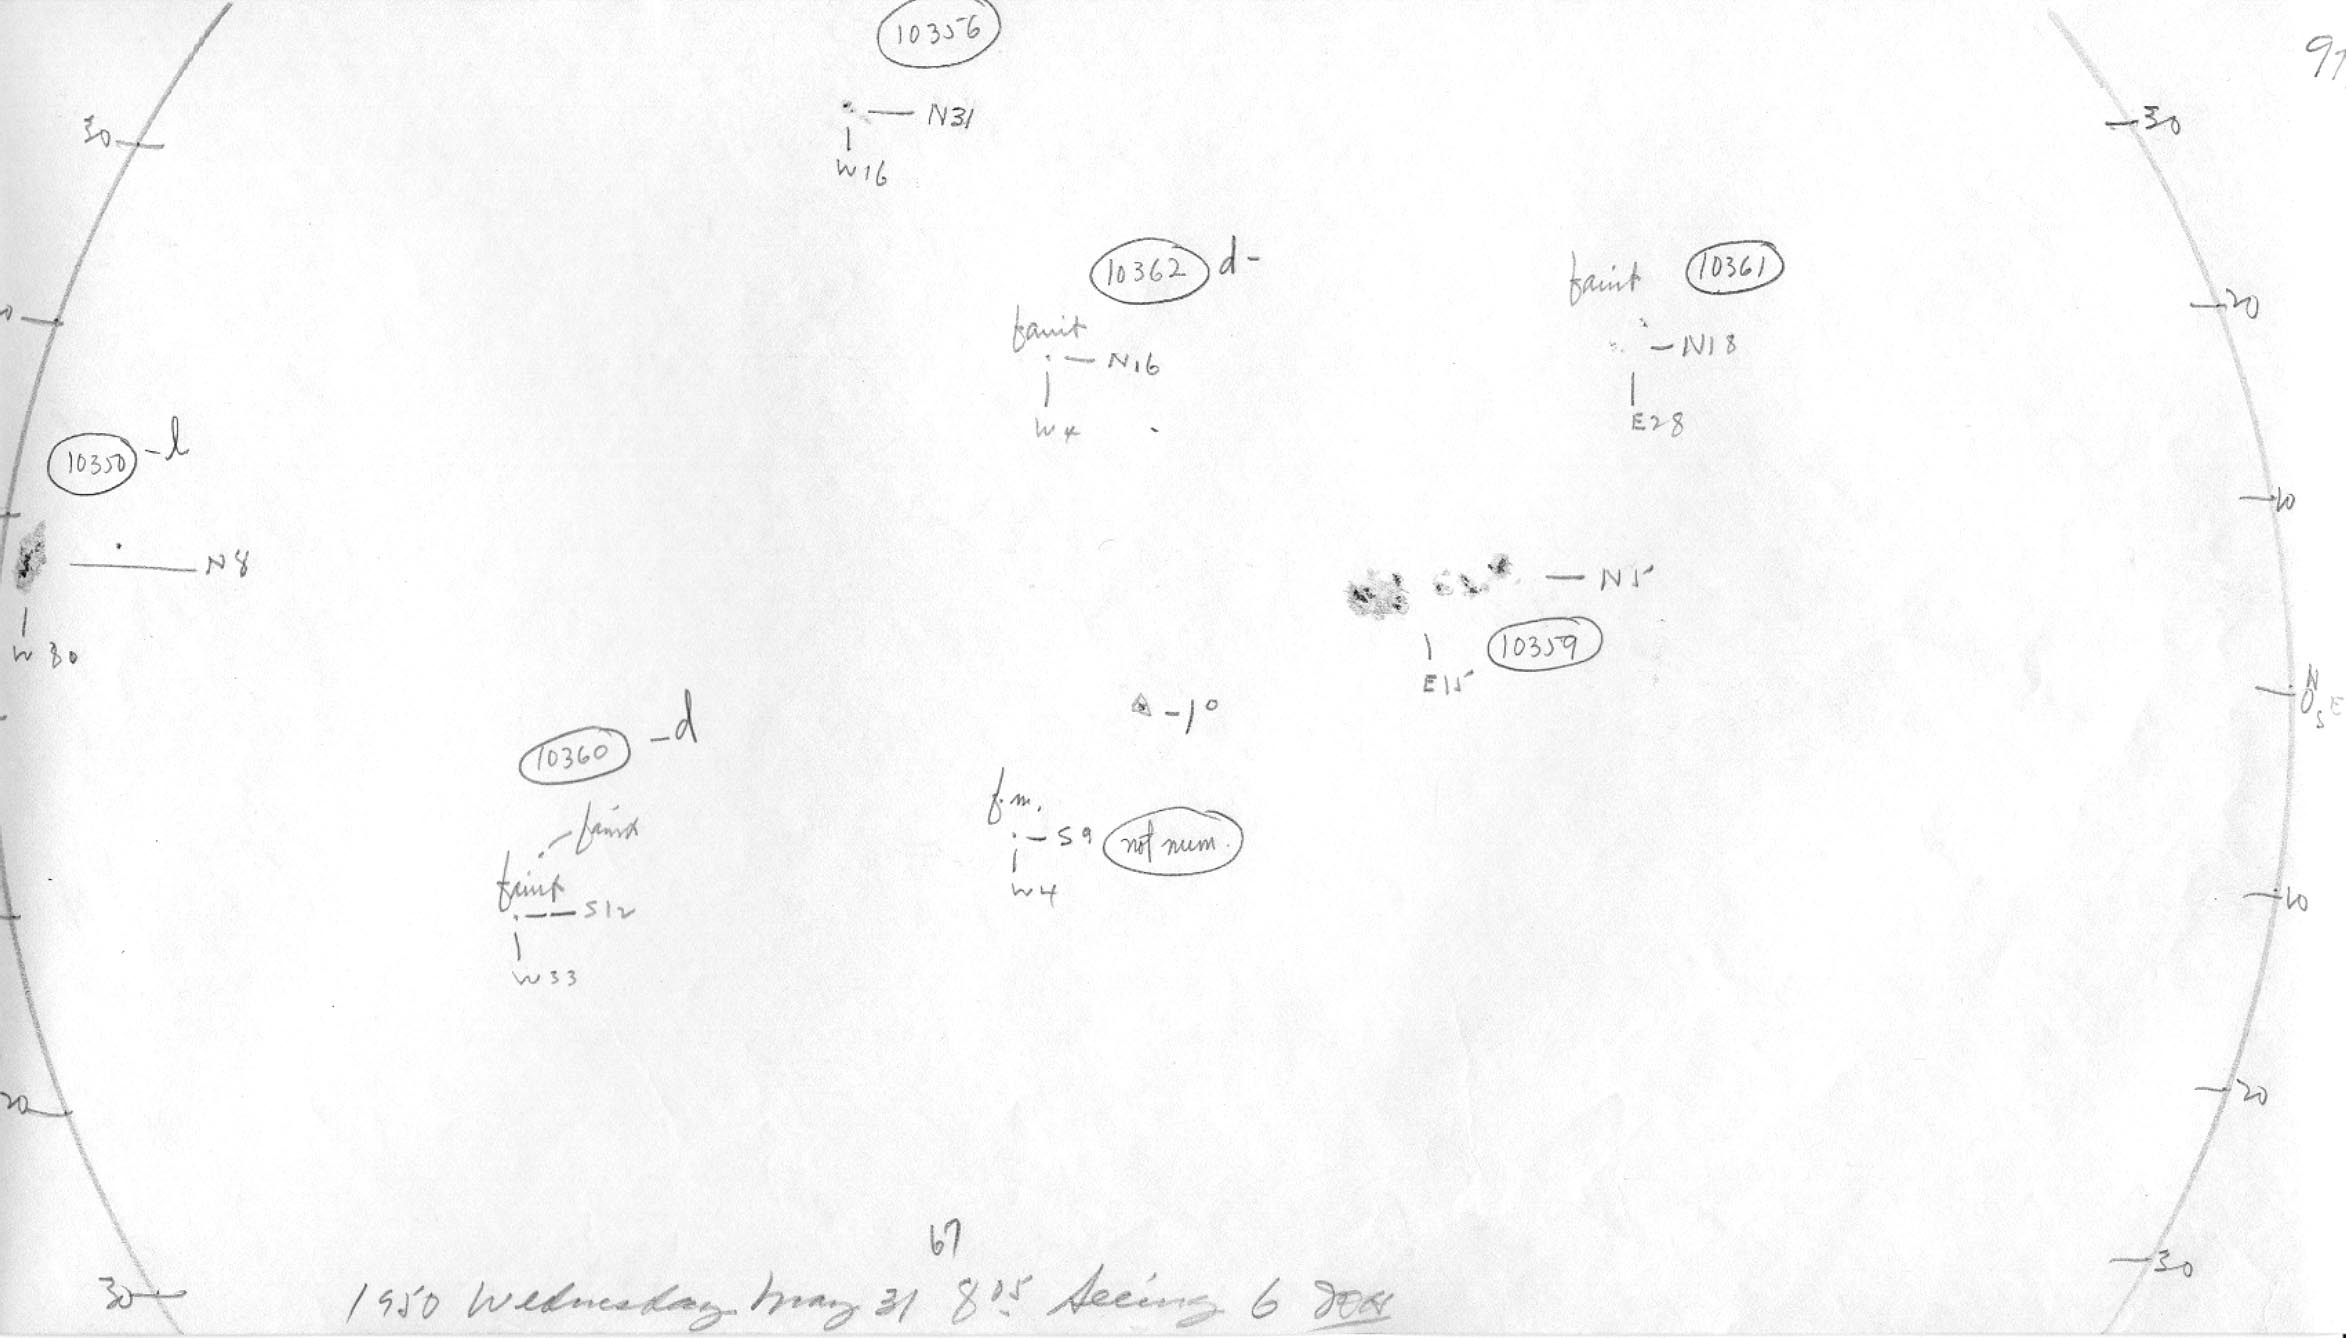 10356
N31
W16
30
30
10362 d-
faint 10361
faint
N16
N18
W4
E28
20
10350 -l
10
N8
N5
W80
10359
E15
-1°
N
0
S E
10360 -d
f.m.
faint
S9 not num.
W4
faint
S12
W33
10
20
20
30
30
67
1950 Wednesday May 31 8 05 Seeing 6